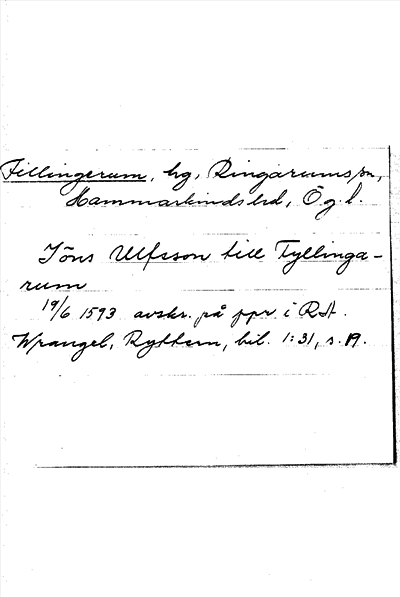 Fillingerum, hg, Ringarums sn,
Hammarkinds hd, Ög. l.
Jöns Ulfsson till Tyllinga-
rum
19/6 1593 avskr. på ppr i RA.
Wrangel, Rytthern, bil. 1:31, s. 19.